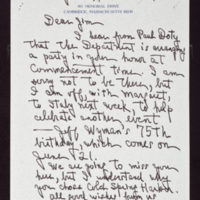 MEMORIAL DRIVE
CAMBRIDGE, MASSACHUSETTS 02138
Dear Jim
I hear from Paul Doty
that the Department is arranging
a party in your honor at
Commencement time. I am
sorry not to be there, but
I am off, with Margaret, to
Italy next week, to help
celebrate another event
— Jeff Wyman's 75th
birthday, which comes on
June 21.
We are going to miss you
here, but I understand why
you chose Cold Spring Harbor.
All good wishes from us